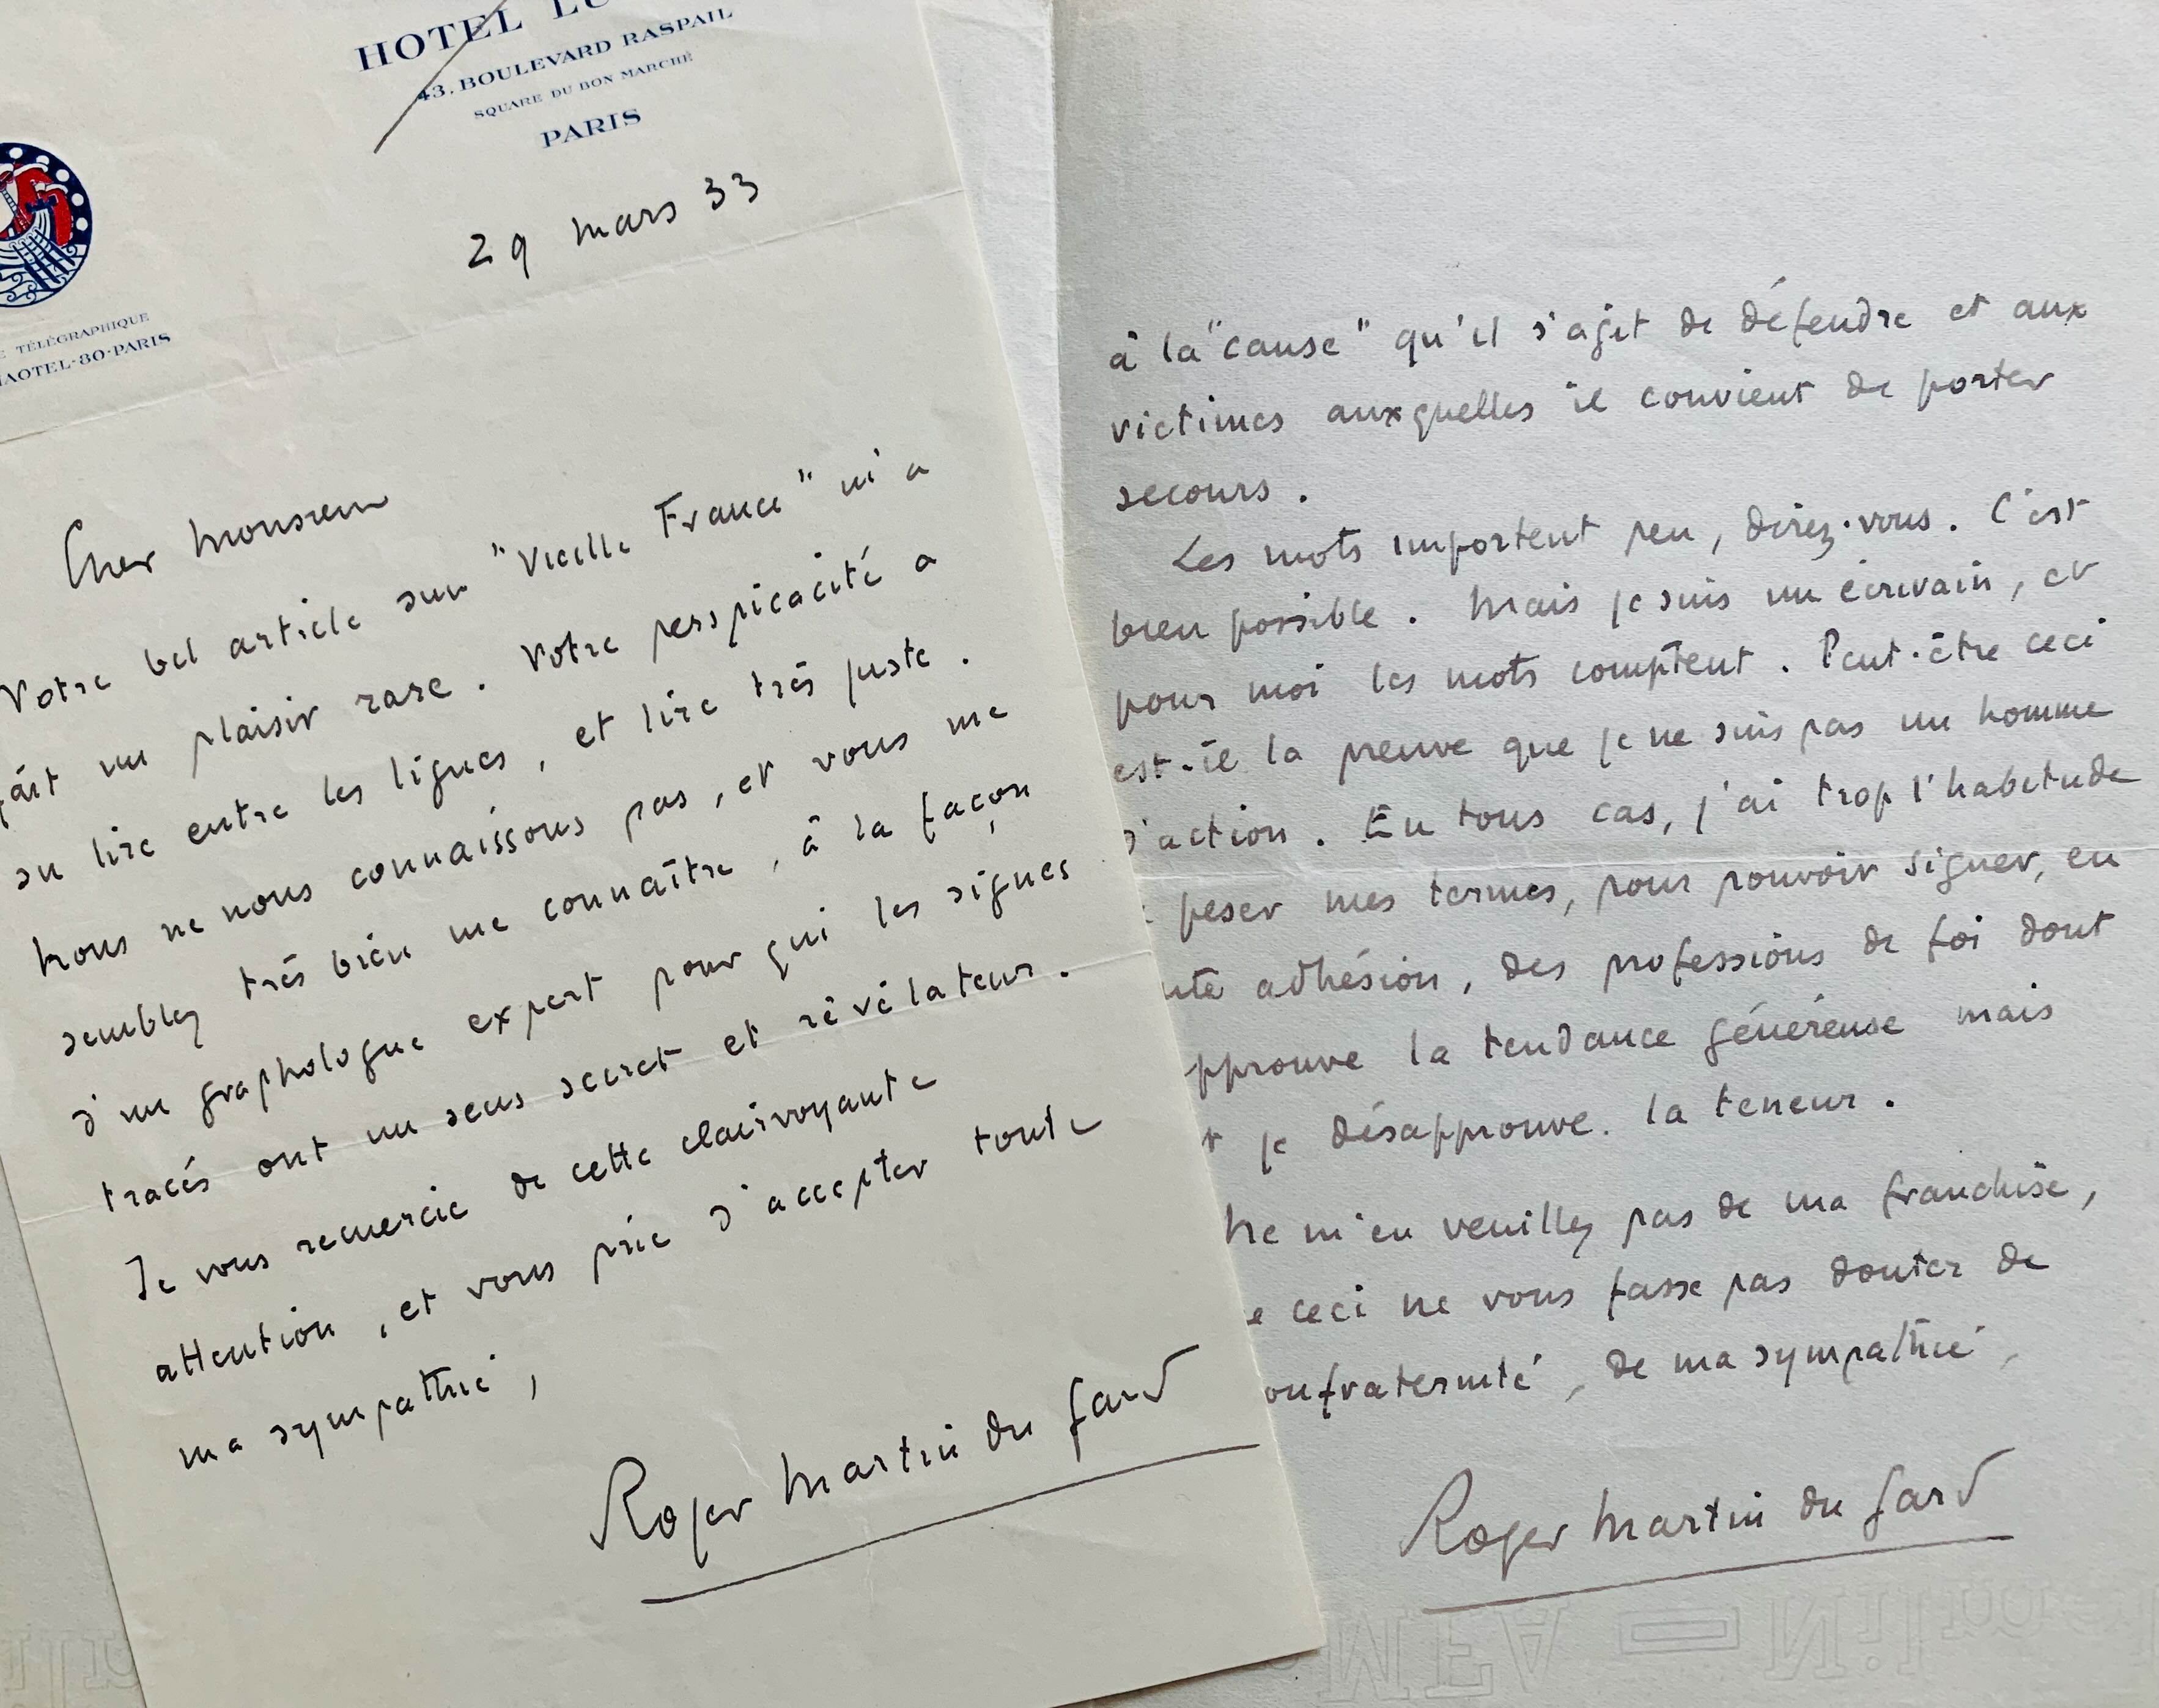 HOTEL LU
43. BOULEVARD RASPAIL
SQUARE DU BON MARCHÉ
PARIS
TÉLÉGRAPHIQUE
OTEL-80-PARIS
29 mars 33
Cher Monsieur
Votre bel article sur "Vieille France" m'a
fait un plaisir rare. Votre perspicacité a
su lire entre les lignes, et lire très juste.
Nous ne nous connaissons pas, et vous me
semblez très bien me connaître, à la façon
d'un graphologue expert pour qui les signes
tracés ont un sens secret et révélateur.
Je vous remercie de cette clairvoyante
attention, et vous prie d'accepter toute
ma sympathie,
Roger Martin du Gard
à la "cause" qu'il s'agit de défendre et aux
victimes auxquelles il convient de porter
secours.
Les mots importent peu, direz-vous. C'est
bien possible. Mais je suis un écrivain, et
pour moi les mots comptent. Peut-être ceci
est-il la preuve que je ne suis pas un homme
d'action. En tous cas, j'ai trop l'habitude
peser mes termes, pour pouvoir signer, en
ute adhésion, des professions de foi dont
pprouve la tendance généreuse mais
je désapprouve la teneur.
Ne m'en veuillez pas de ma franchise,
e ceci ne vous fasse pas douter de
onfraternité, de ma sympathie,
Roger Martin du Gard